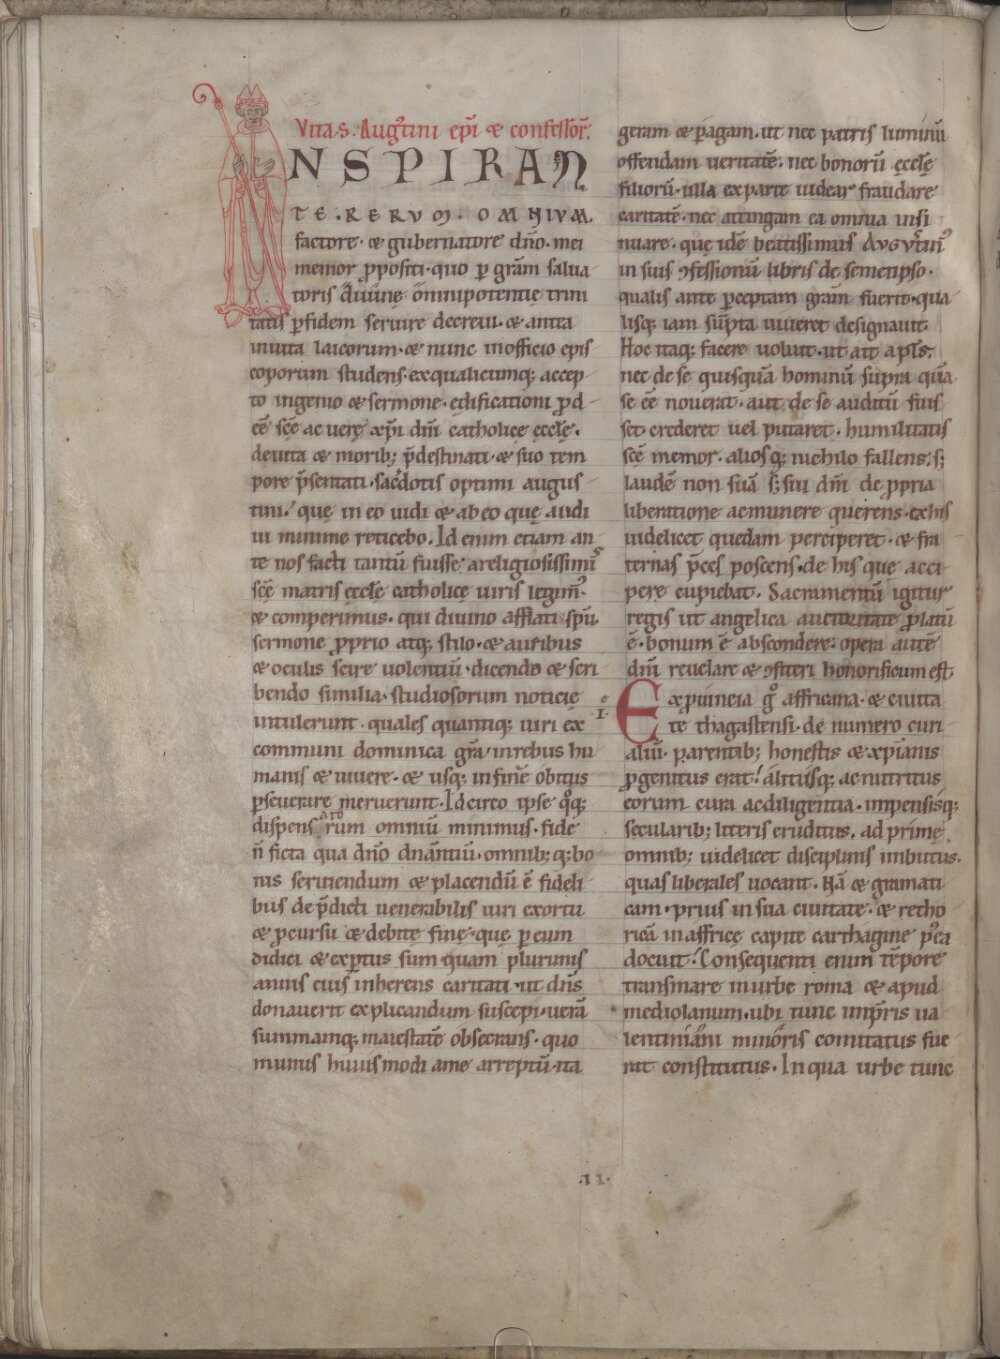 Vita .S. Augꝰtini ep̄i ⁊ confessor̄.
INSPIRAN
TE . RERUM . OMNIUM.
factore . & gubernatore dn̄o . mei
memor ꝓpositi . quo p̱ grām salua
toris diuinę omnipotentię trini
tatis ꝑ fidem seruire decreui . & antea
inuita laicorum . & nunc in officio epis
coporum studens . ex qualicumq; accep
to ingenio & sermone . edificationi ꝓd
eē scę̄ ac uerę xp̄i dn̄i catholicę eccłę .
de uita & morib; p̄destinati . & suo tem
pore p̄sentati . sac̄dotis optimi augus
tini . quę in eo uidi & ab eo quę audi
ui minime reticebo . Id enim etiam an
te nos facti tantū fuisse a religiosissimꝰ
scę̄ matris eccłę catholicę uiris legimꝰ .
& comperimus . qui diuino afflati spū .
sermone ꝓprio atq; stilo . & auribus
& oculis scire uolentiū . dicendo & scri
bendo similia . studiosorum noticię
intulerunt . quales quantiq; uiri ex
communi dominica grā . in rebus hu
manis & uiuere . & usq; in finē obitus
ꝑseuerare meruerunt . Idcirco ipse qͦq;
dispensatorum omniū minimus . fide
n̄ ficta qua dn̄o dn̄antiū . omnib; q; bo
nis seruiendum & placendū ē fideli
bus de p̄dicti uenerabilis uiri exortu
& ꝓcursu & debito fine . quę ꝑ eum
didici & exꝑtus sum quam plurimis
annis eius inherens caritati . ut dn̄s
donauerit explicandum suscepi . uerā
summamq; maiestatē obsecrans . quo
munus huiusmodi a me arreptū . ita
geram & ꝑagam . ut nec patris luminū
offendam ueritatē . nec bonorū eccłę
filiorū . ulla ex parte uidear fraudare
caritatē . nec attingam ea omnia insi
nuare . quę idē beatissimus AUGUSTINꝰ
in suis ꝯfessionū libris de semetipso .
qualis ante ꝑceptam grām fuerit . qua
lisq; iam sūpta uiueret designauit .
Hoc itaq; facere uoluit . ut ait apłs .
nec de se quisquā hominū supra quā
se eē nouerat . aut de se auditū fuis
set crederet uel putaret . humilitatis
scę̄ memor . aliosq; nichilo fallens . s;
laudē non suā s; sui dn̄i de ꝓpria
liberatione ac munere querens . ex his
uidelicet quedam perciperet . & fra
ternas p̄ces poscens . de his que acci
pere cupiebat . Sacramentū igitur
regis ut angelica auctoritate ꝓlatū
ē . bonum ē abscondere : opera autē
dn̄i reuelare & ꝯfiteri honorificum est
.I.
Ex ꝓuincia gͦ affricana . & ciuita
te thagastensi . de numero curi
aliū . parentib; honestis & xp̄ianis
ꝓgenitus erat . alitusq; ac nutritus
eorum cura ac diligentia . impensisq;
secularib; litteris eruditus . ad prime
omnib; uidelicet disciplinis imbutus .
quas liberales uocant . Nā & gramati
cam . prius in sua ciuitate . & retho
ricā in affricę capite carthagine p̊ea
docuit . Consequenti enim tēpore
transmare in urbe roma & apud
mediolanum . ubi tunc imp̄ris ua
lentiniani minoris comitatus fue
rat constitutus . In qua urbe tunc
.II.